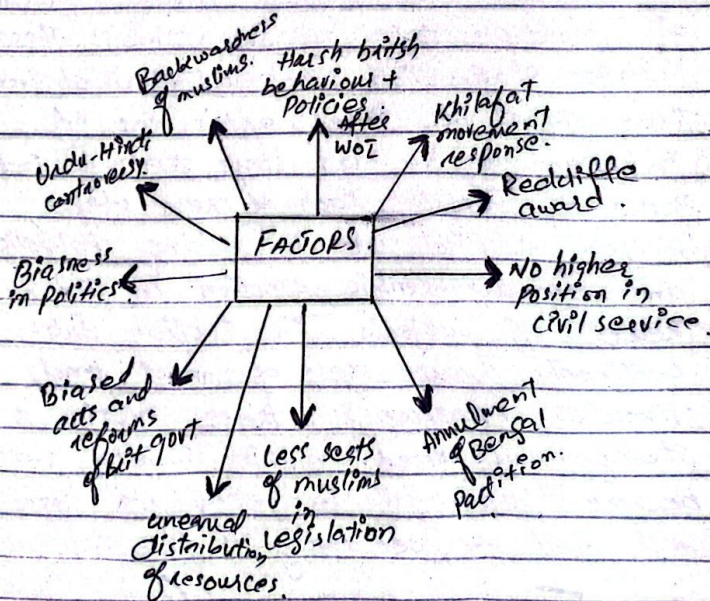 FACTORS.
Backwardness
of muslims.
Harsh british
behaviour +
Policies.
After
WOI
Khilafat
movement
response.
Redcliffe
award.
No higher
Position in
civil service.
Annulment
of Bengal
partition.
Less seats
of muslims
in
legislation
unequal
distribution
of resources.
Biased
acts and
reforms
of brit govt
Biasness
in politics.
Urdu-Hindi
controversy.